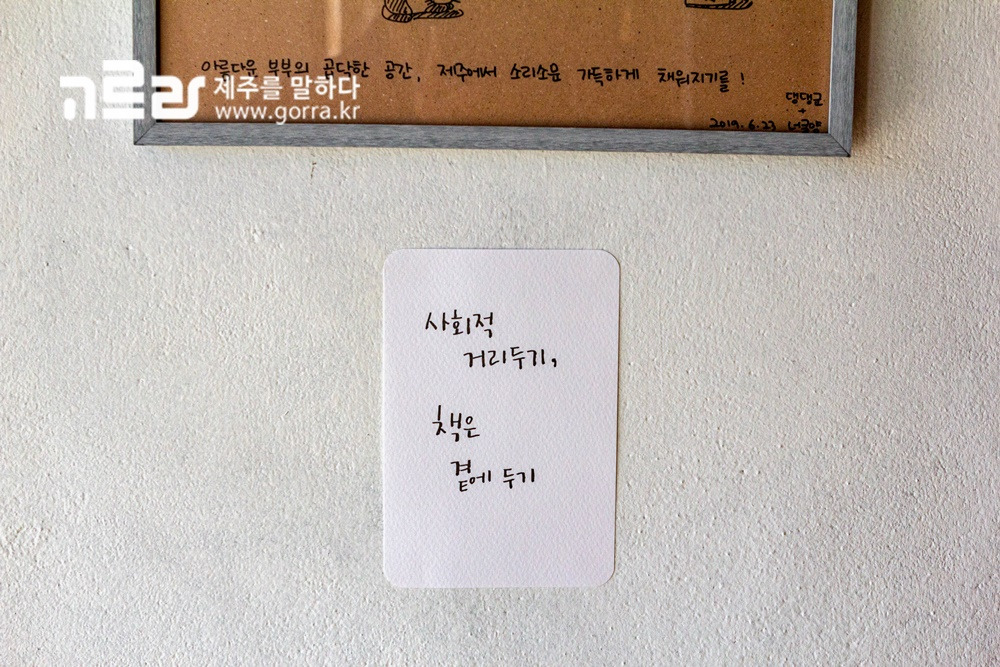 아름다운 부부의 곱닥한 공간, 제주에서 소리소문 가득하게 채워지기를!
댕댕군
+
2019.6.23 너굴양
고르라 제주를 말하다
www.gorra.kr
사회적
거리두기,
책은
곁에 두기